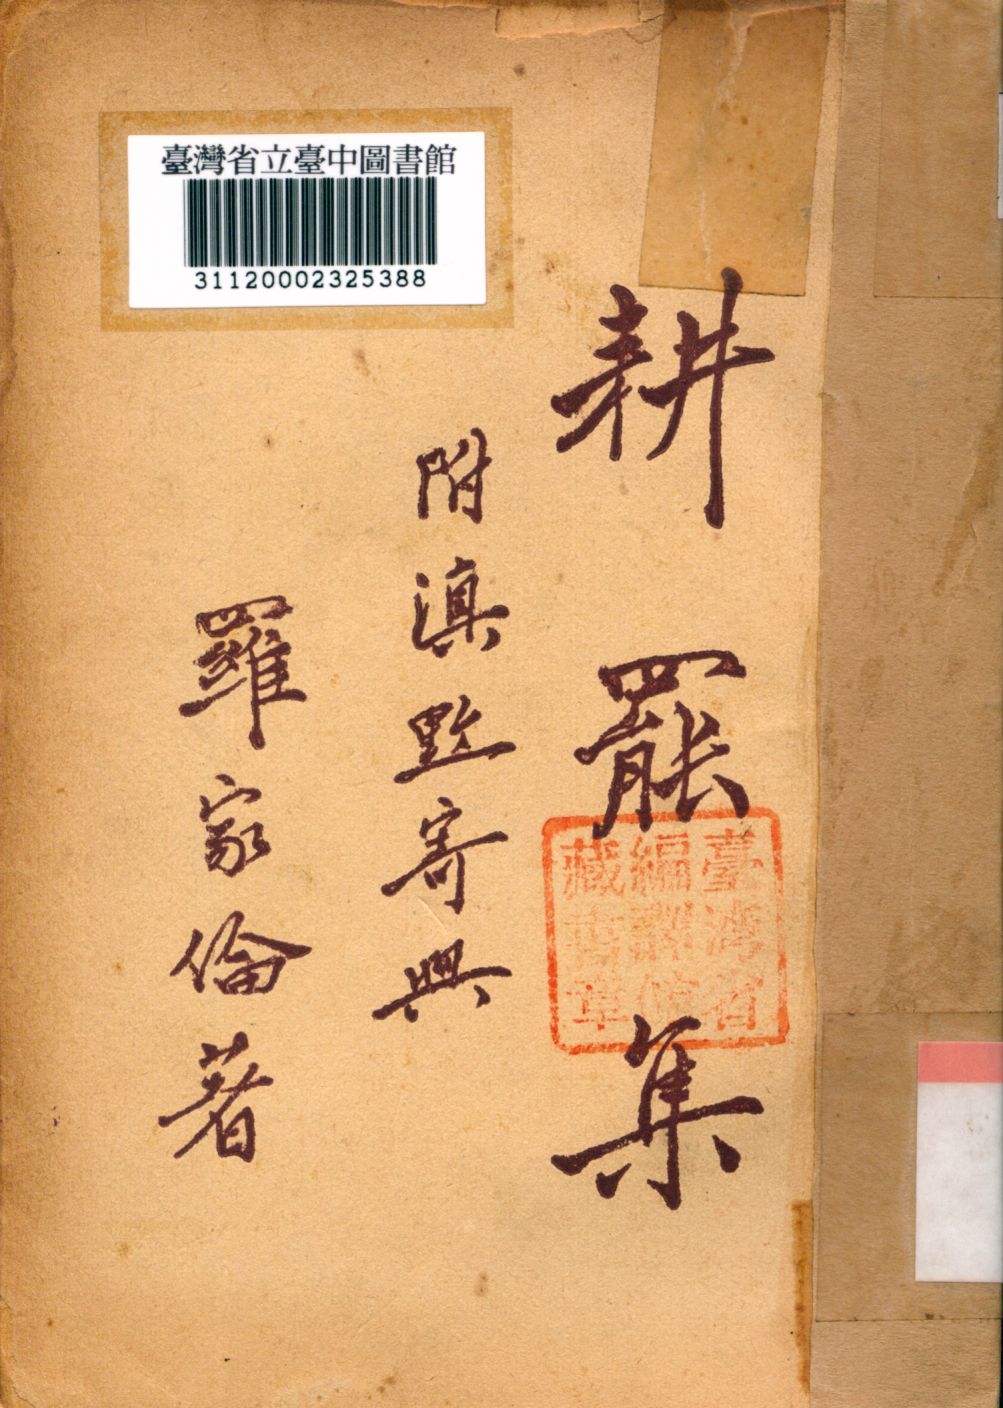 臺灣省立臺中圖書館
31120002325388
耕罷集
附滇黔寄興
羅家倫著
臺灣省
編譯館
藏書章